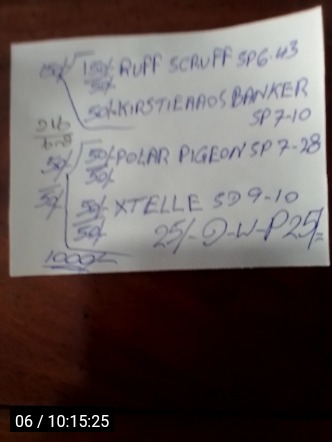 50/- 50/- RUFF SCRUFF SP 6-43
50/-
50/- KIRSTIEAAOS BANKER
SP 7-10
50/- 50/- POLAR PIGEON SP 7-28
50/- 50/-
50/- XTELLE SP 9-10
50/-
25/- D-W-P 25/-
1000/-
06 / 10:15:25